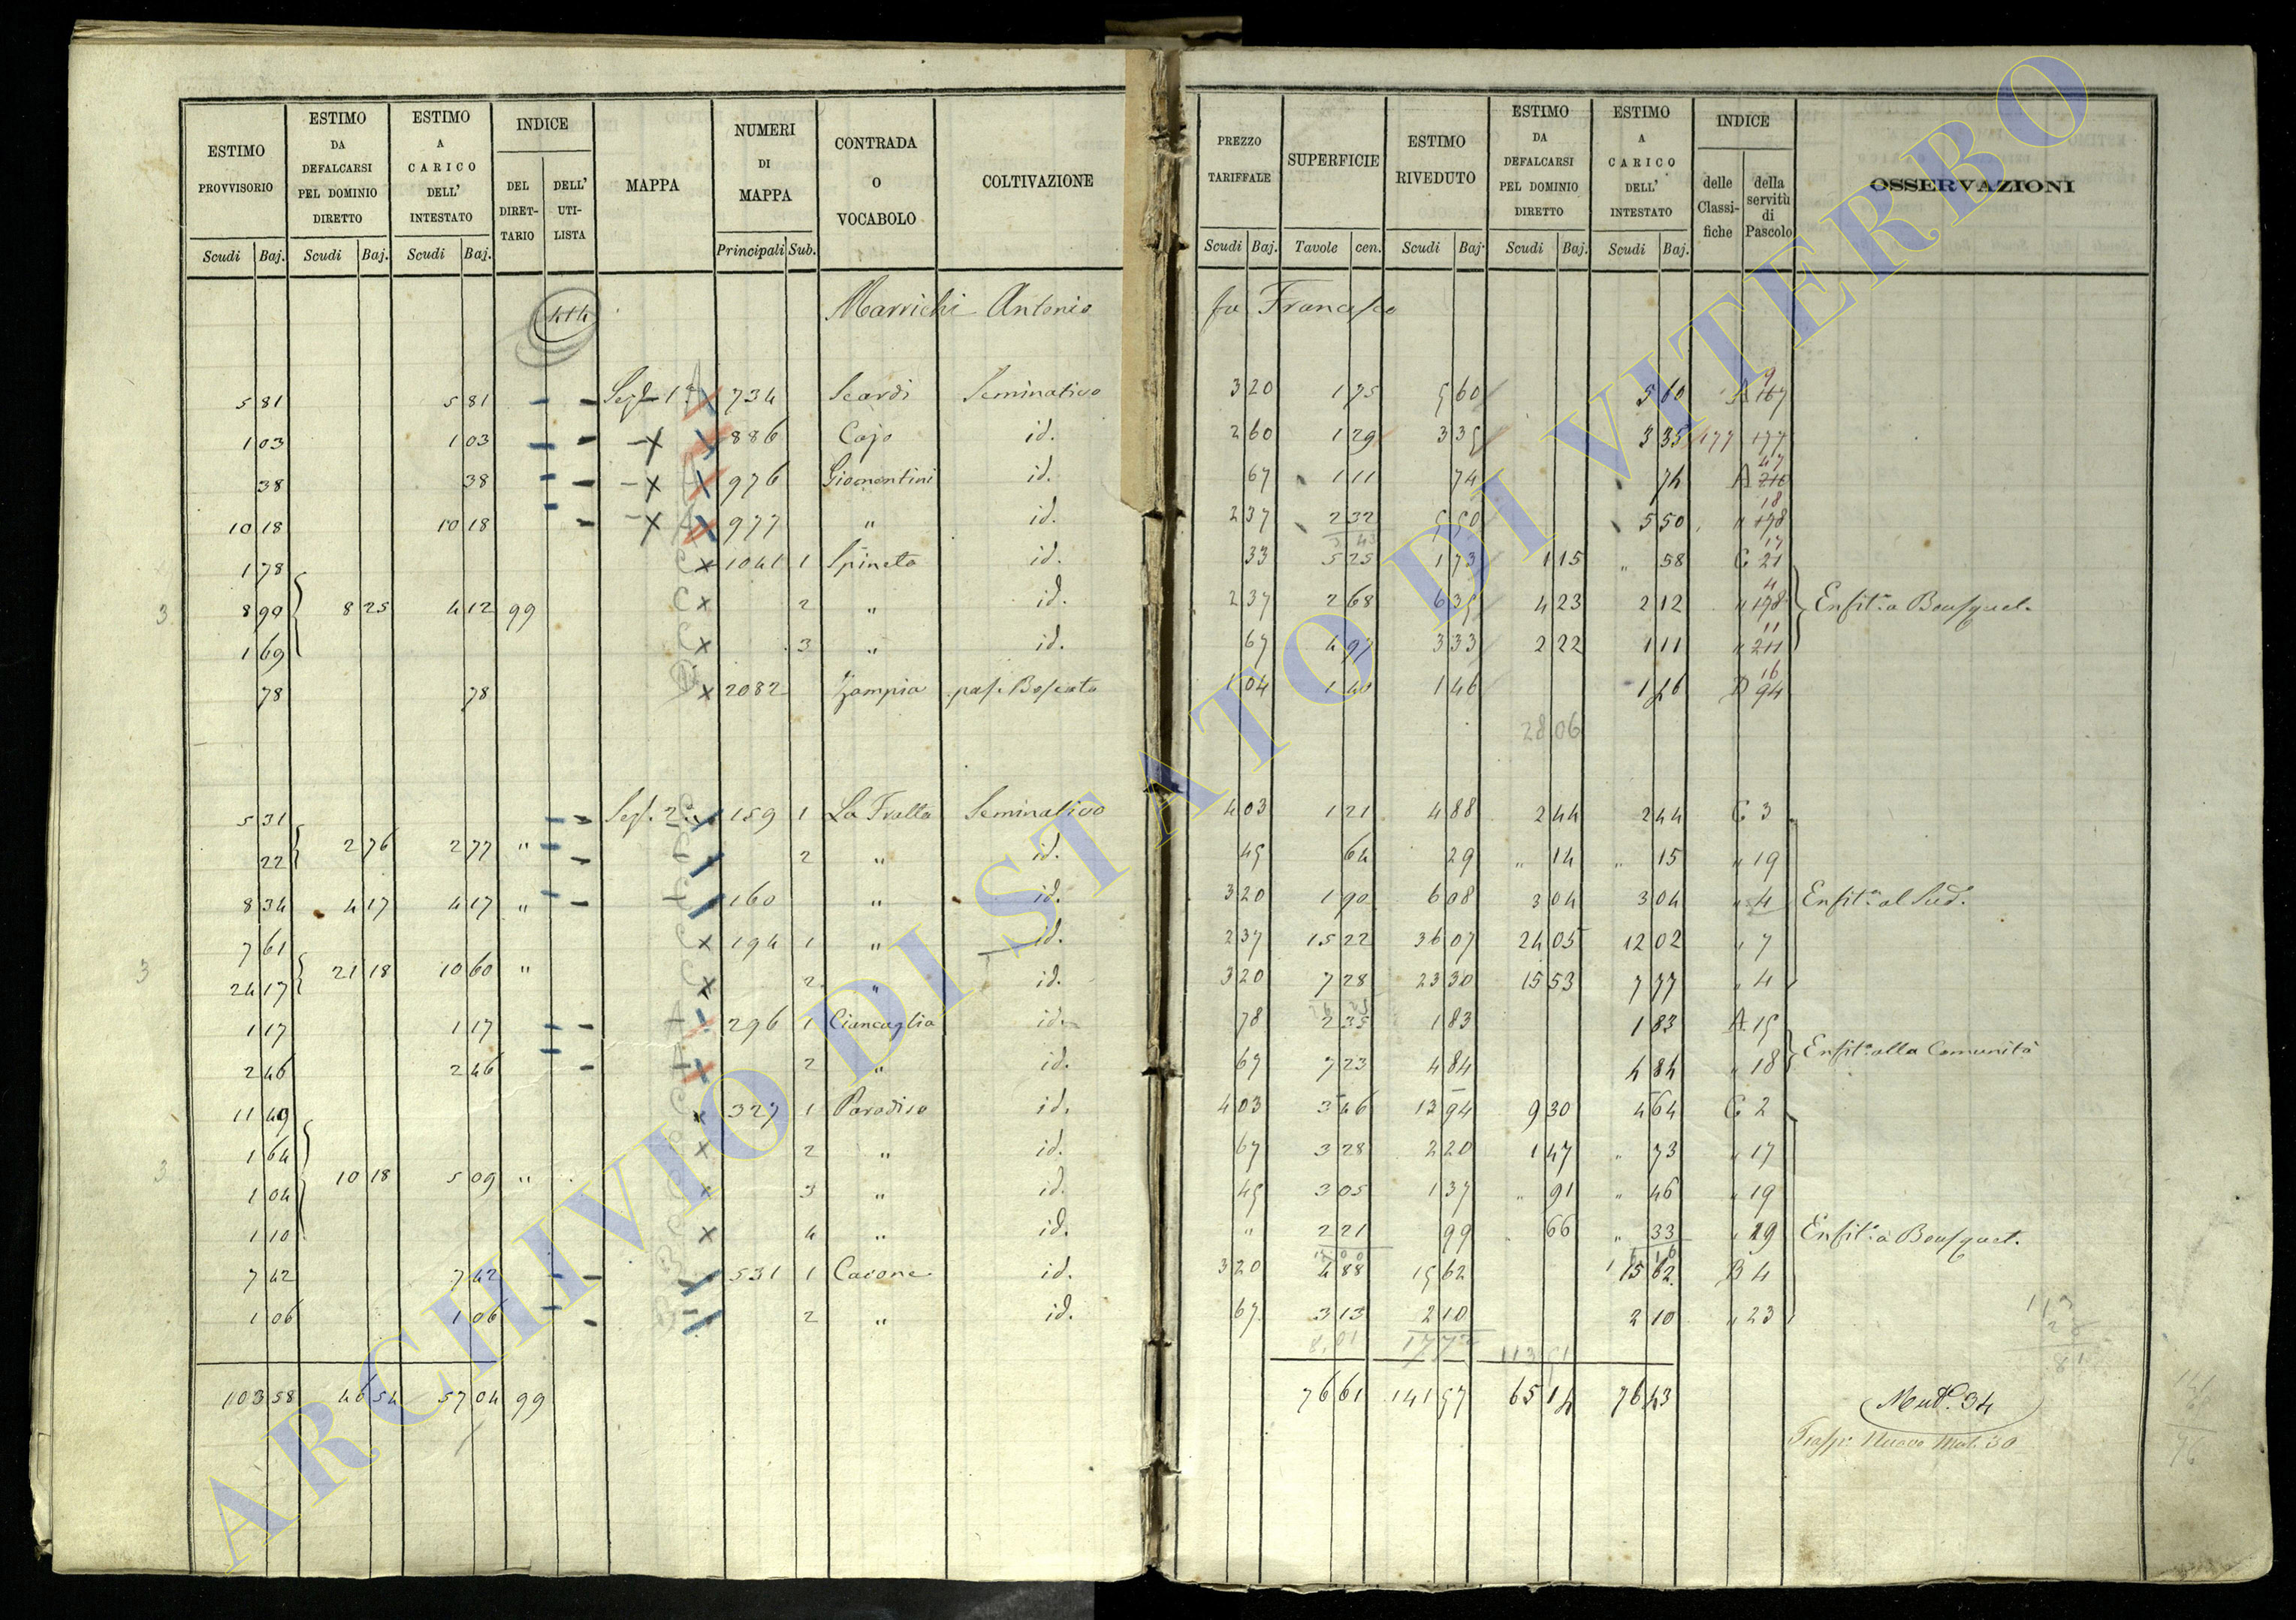 ESTIMO PROVVISORIO | ESTIMO DA DEFALCARSI PEL DOMINIO DIRETTO | ESTIMO A CARICO DELL' INTESTATO | INDICE | MAPPA | NUMERI DI MAPPA | CONTRADA O VOCABOLO | COLTIVAZIONE | PREZZO TARIFFALE | SUPERFICIE | ESTIMO RIVEDUTO | ESTIMO DA DEFALCARSI PEL DOMINIO DIRETTO | ESTIMO A CARICO DELL' INTESTATO | INDICE | OSSERVAZIONI
DEL DIRET-TARIO | DELL' UTI-LISTA | delle Classi-fiche | della servitù di Pascolo
Scudi Baj. | Scudi Baj. | Scudi Baj. | Principali Sub. | Scudi Baj. | Tavole cen. | Scudi Baj. | Scudi Baj. | Scudi Baj.
Antonio fu
5 81 | 5 81 | 734 | Scardi | Seminativo | 3 20 | 1 75 | 5 60 | 5 60 | A
1 03 | 1 03 | 886 | Cajo | id. | 2 60 | 1 29 | 3 35 | 3 35 | 177 177
38 | 38 | 976 | Giomentini | id. | 67 | 1 11 | 74 | 74 | A
10 18 | 10 18 | 977 | " | id. | 2 37 | 2 32 | 5 50 | 5 50 | "
1 78 | 1041 1 | Spineta | id. | 33 | 5 25 | 1 73 | 1 15 | " 58 | C 21
3 | 8 90 | 8 25 | 4 12 | 99 | 2 | " | id. | 2 37 | 2 68 | 6 35 | 4 23 | 2 12 | " 178 | Enfit.a a Bousquet.
1 69 | 3 | " | id. | 67 | 4 97 | 3 33 | 2 22 | 1 11 | " 211
78 | 78 | 2082 | Zampia | pas. Boscato | 1 04 | 1 40 | 1 46 | 1 46 | D 94
28 06
5 31 | 159 1 | La Fratta | Seminativo | 4 03 | 1 21 | 4 88 | 2 44 | 2 44 | C 3
22 | 2 76 | 2 77 | " | 2 | " | id. | 45 | 64 | 29 | " 14 | " 15 | " 19
8 34 | 4 17 | 4 17 | " | 160 | " | id. | 3 20 | 1 90 | 6 08 | 3 04 | 3 04 | " 4 | Enfit.a al Sud.o
7 61 | 194 1 | " | id. | 2 37 | 15 22 | 36 07 | 24 05 | 12 02 | " 7
3 | 24 17 | 21 18 | 10 60 | " | 2 | " | id. | 3 20 | 7 28 | 23 30 | 15 53 | 7 77 | " 4
1 17 | 1 17 | 296 1 | Ciancaglia | id. | 78 | 2 35 | 1 83 | 1 83 | A 15
2 46 | 2 46 | 2 | " | id. | 67 | 7 23 | 4 84 | 4 84 | " 18 | Enfit.a alla Comunità
11 49 | 327 1 | Paradiso | id. | 4 03 | 3 46 | 13 94 | 9 30 | 4 64 | C 2
1 64 | 2 | " | id. | 67 | 3 28 | 2 20 | 1 47 | " 73 | " 17
3 | 1 04 | 10 18 | 5 09 | " | 3 | " | id. | 45 | 3 05 | 1 37 | " 91 | " 46 | " 19
1 10 | 4 | " | id. | " | 2 21 | 99 | " 66 | " 33 | " 19 | Enfit.a a Bousquet.
7 42 | 7 42 | 531 1 | Caione | id. | 3 20 | 4 88 | 15 62 | 15 62 | B 4
1 06 | 1 06 | 2 | " | id. | 67 | 3 13 | 2 10 | 2 10 | " 23
103 58 | 46 54 | 57 04 | 99 | 76 61 | 141 57 | 65 14 | 76 43 | 34
ARCHIVIO DI STATO DI VITERBO